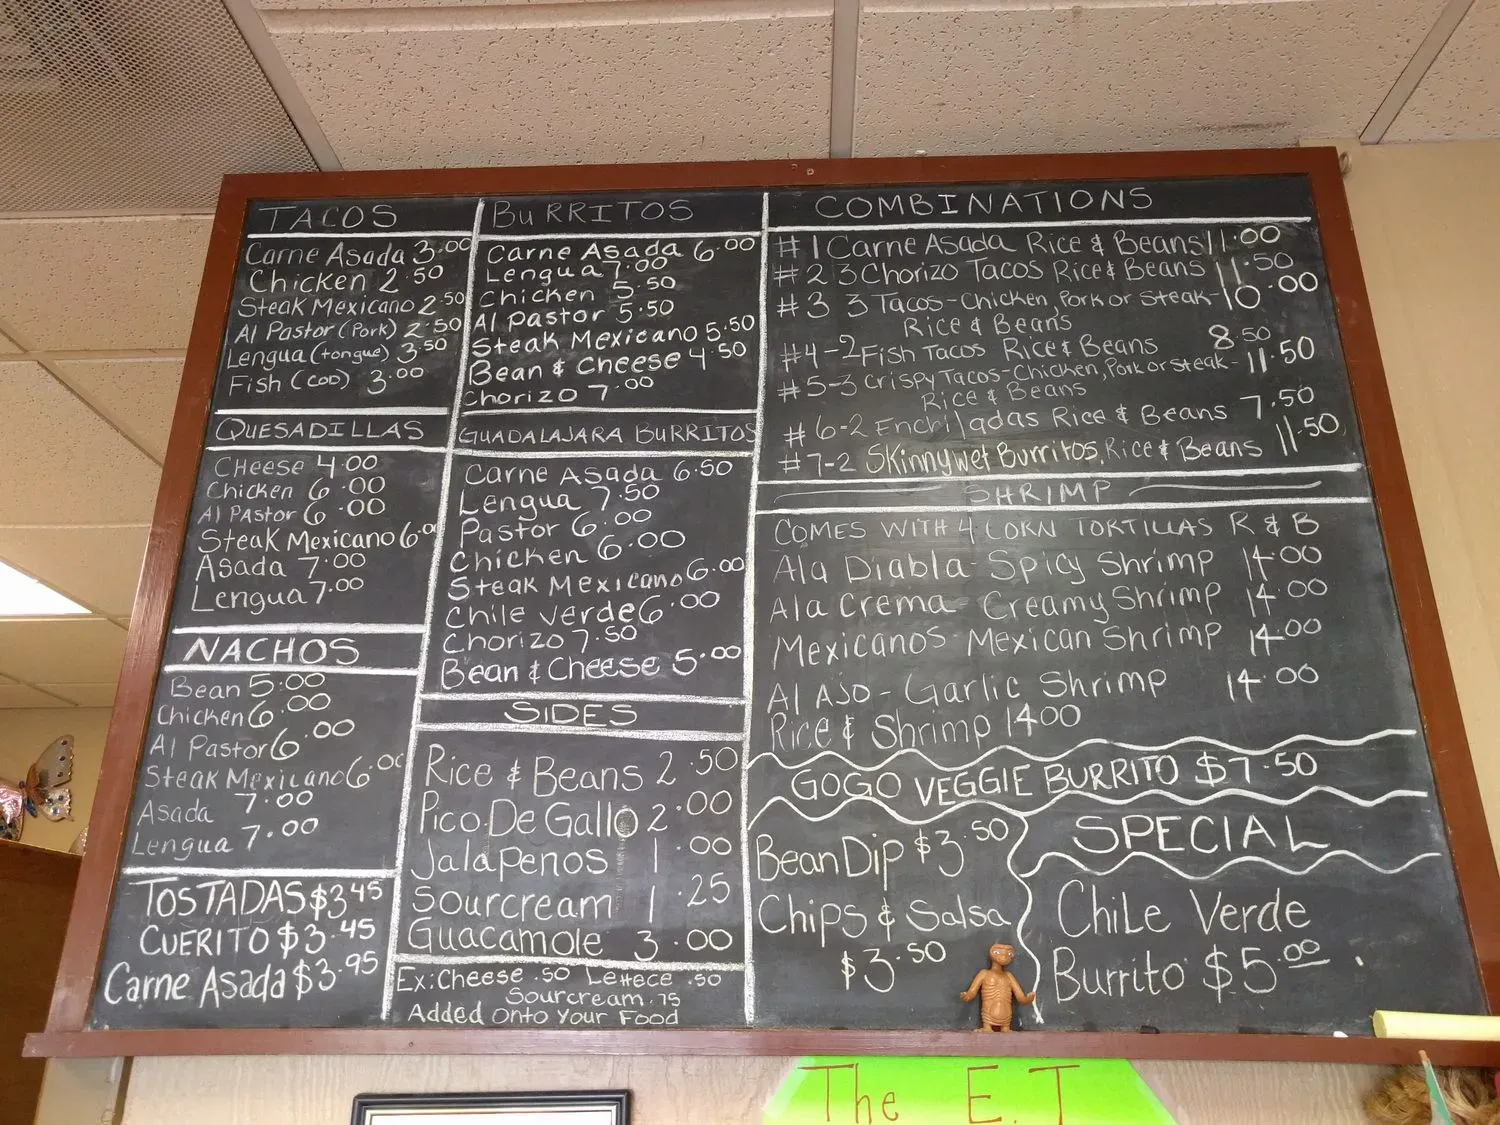 TACOS
Carne Asada 3.00
Chicken 2.50
Steak Mexicano 2.50
Al Pastor (Pork) 2.50
Lengua (tongue) 3.50
Fish (COD) 3.00
QUESADILLAS
CHeese 4.00
Chicken 6.00
Al PAStor 6.00
Steak Mexicano 6.00
Asada 7.00
Lengua 7.00
NACHOS
Bean 5.00
Chicken 6.00
Al Pastor 6.00
Steak Mexicano 6.00
Asada 7.00
Lengua 7.00
TOSTADAS $3.45
CUERITO $3.45
Carne Asada $3.95
BuRRITOS
Carne Asada 6.00
Lengua 7.00
Chicken 5.50
Al Pastor 5.50
Steak Mexicano 5.50
Bean & Cheese 4.50
Chorizo 7.00
GUADALAJARA BURRITOS
Carne Asada 6.50
Lengua 7.50
Pastor 6.00
Chicken 6.00
Steak Mexicano 6.00
Chile Verde 6.00
Chorizo 7.50
Bean & Cheese 5.00
SIDES
Rice & Beans 2.50
Pico De Gallo 2.00
Jalapenos 1.00
Sourcream 1.25
Guacamole 3.00
Ex: Cheese .50 Lettece .50
Sourcream .75
Added Onto Your Food
COMBINATIONS
#1 Carne Asada Rice & Beans 11.00
#2 3 Chorizo Tacos Rice & Beans 11.50
#3 3 Tacos-Chicken, Pork or Steak- 10.00
Rice & Beans
#4-2 Fish Tacos Rice & Beans 8.50
#5-3 Crispy Tacos-Chicken, Pork or Steak- 11.50
Rice & Beans
#6-2 Enchiladas Rice & Beans 7.50
#7-2 Skinny wet Burritos, Rice & Beans 11.50
SHRIMP
COMES WITH 4 CORN TORTILLAS R & B
Ala Diabla- Spicy Shrimp 14.00
Ala Crema- Creamy Shrimp 14.00
Mexicanos- Mexican Shrimp 14.00
Al AJO- Garlic Shrimp 14.00
Rice & Shrimp 14.00
GOGO VEGGIE BURRITO $7.50
Bean Dip $3.50
Chips & Salsa
$3.50
SPECIAL
ChiLe Verde
Burrito $5.00
The E.T